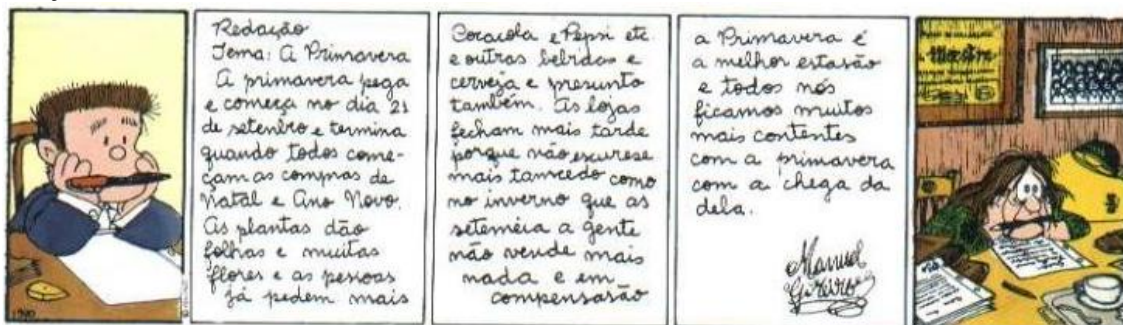 Redação
Tema: A Primavera
A primavera pega
e começa no dia 21
de setenbro e termina
quando todos come-
çam as compras de
Natal e Ano Novo.
As plantas dão
folhas e muitas
flores e as pessoas
já pedem mais
Cocacola e Pepsi etc.
e outras bebidas e
cerveja e presunto
também. As lojas
fecham mais tarde
porque não escurese
mais tamcedo como
no inverno que as
seteméia a gente
não vende mais
nada e em
compensasão
a Primavera é
a melhor estasão
e todos nós
ficamos muitos
mais contentes
com a primavera
com a chega da
dela.
Manuel
Goreiro
1990
Maestra